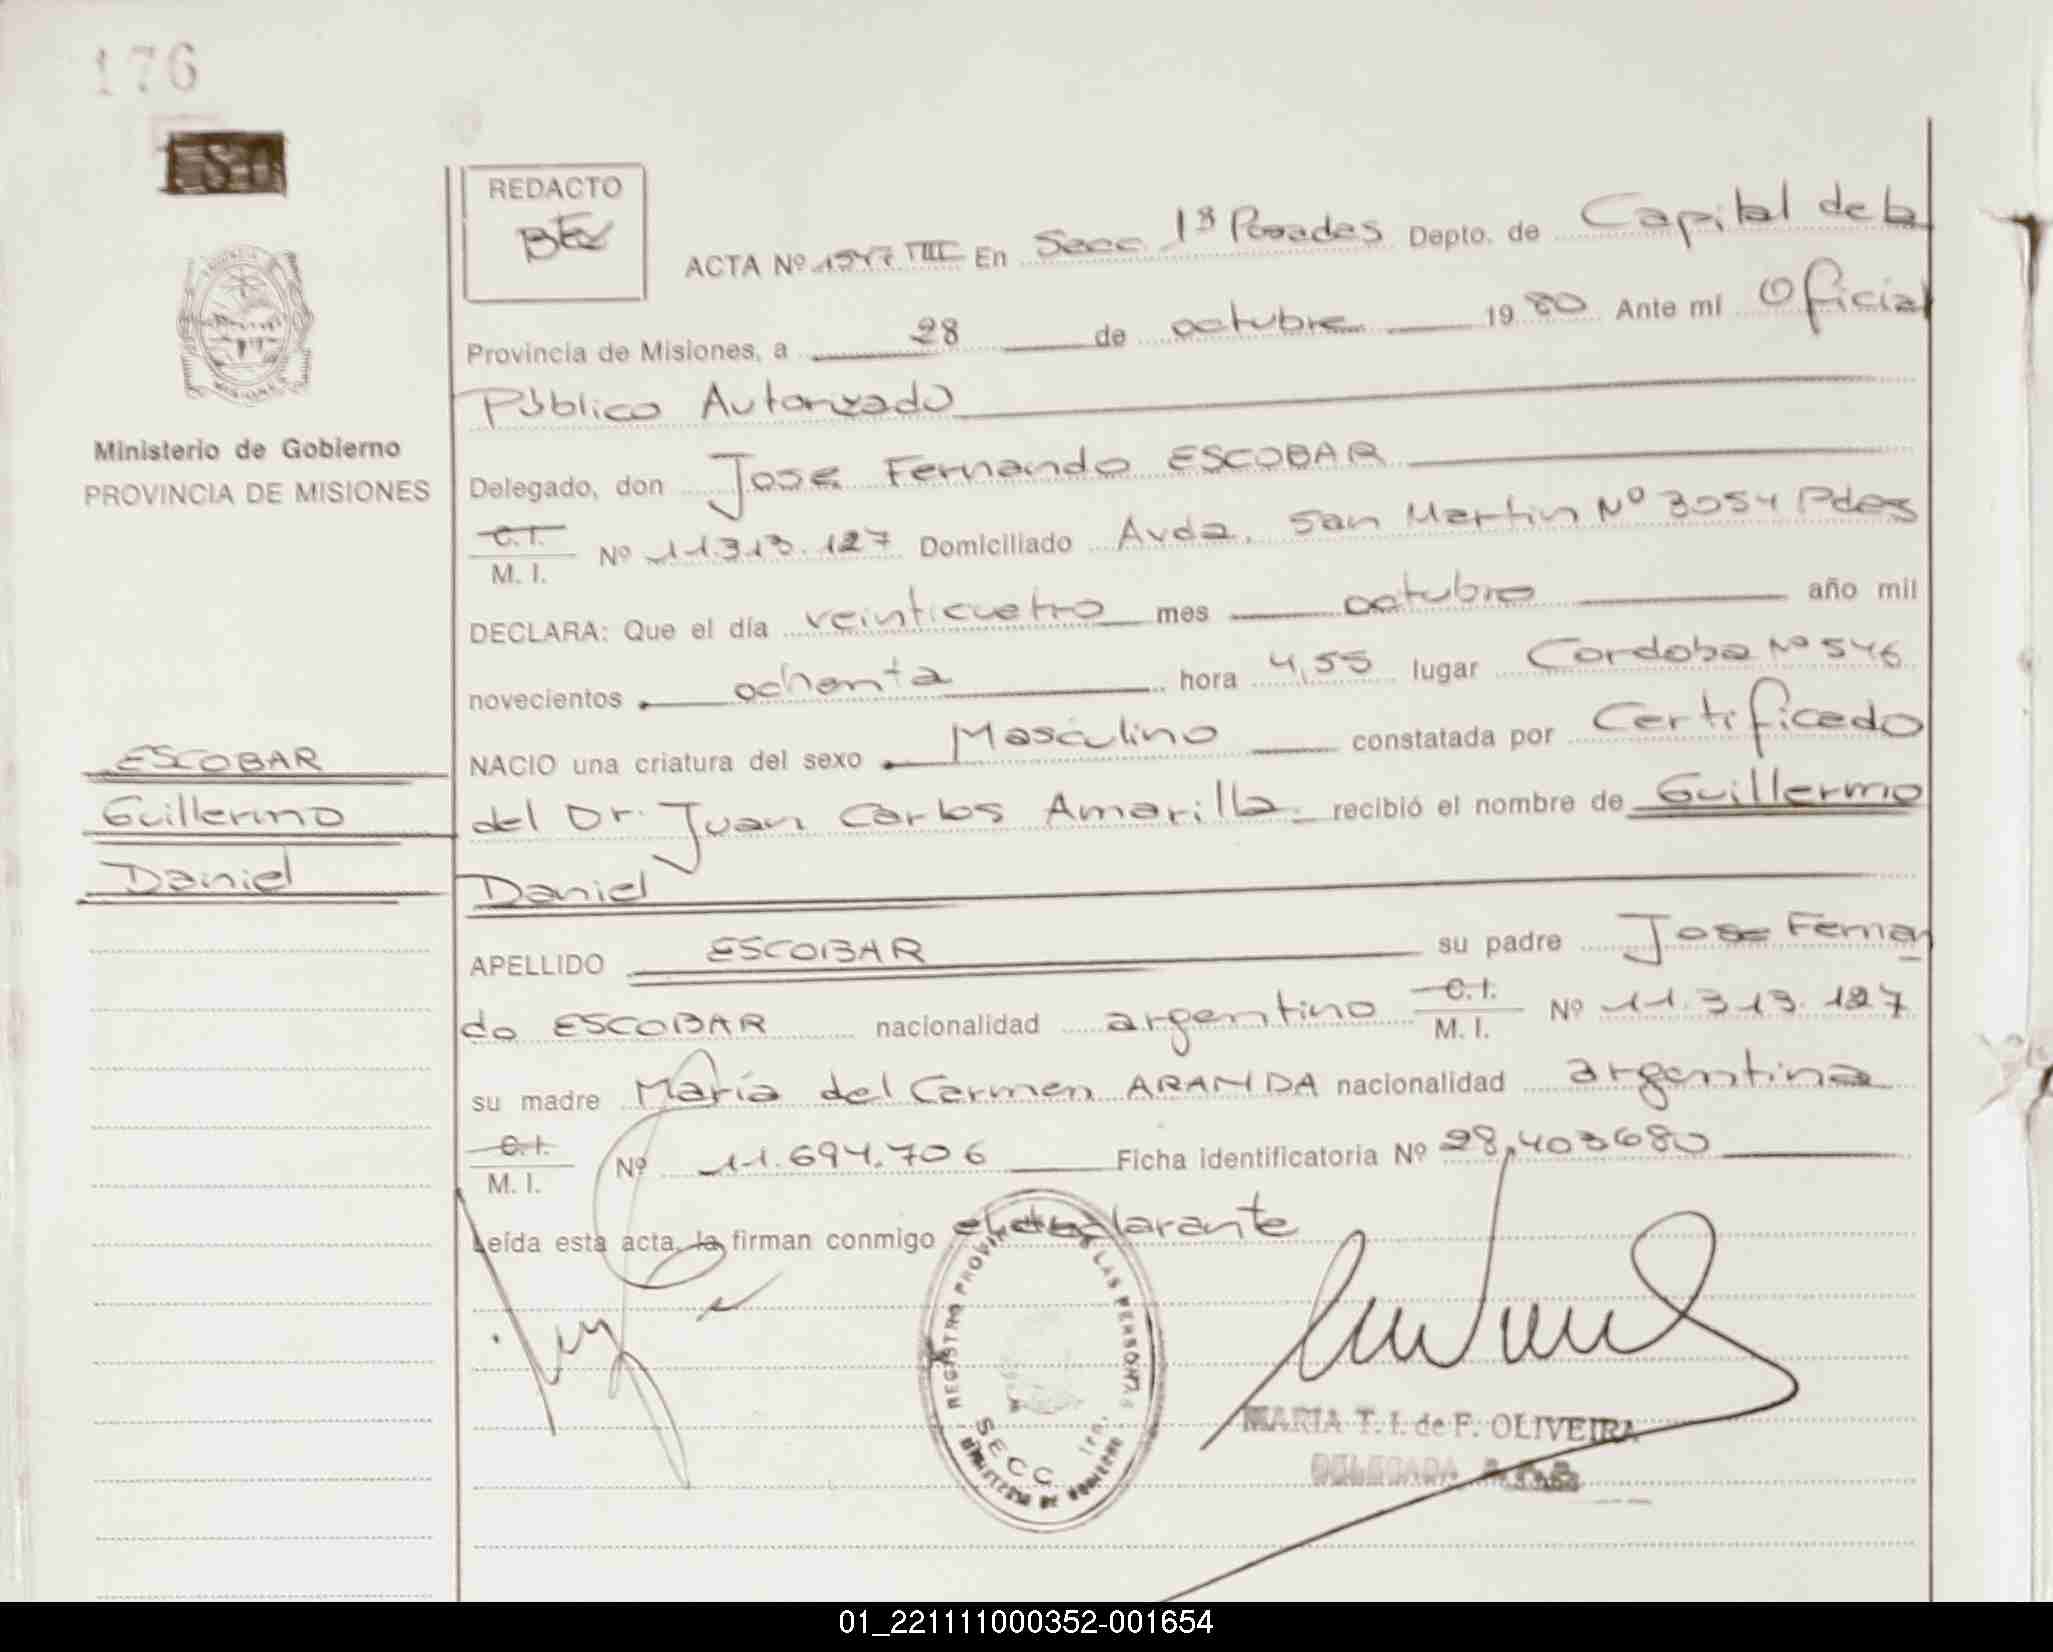 176
REDACTO
ACTA Nº 1547 TIII En Secc 1ª Posadas Depto. de Capital de la
Provincia de Misiones, a 28 de octubre 1980 Ante mí Oficial
Público Autorizado
Ministerio de Gobierno
PROVINCIA DE MISIONES
Delegado, don Jose Fernando ESCOBAR
C.I.
M. I. Nº 11.313.127 Domiciliado Avda. San Martin Nº 3054 Pdas
DECLARA: Que el día veinticuatro mes octubre año mil
novecientos ochenta hora 4,55 lugar Cordoba Nº 546
NACIO una criatura del sexo Masculino constatada por Certificado
del Dr. Juan Carlos Amarilla recibió el nombre de Guillermo
Daniel
ESCOBAR
Guillermo
Daniel
APELLIDO ESCOBAR su padre Jose Fernan
do ESCOBAR nacionalidad argentino C.I.
M. I. Nº 11.313.127
su madre María del Carmen ARANDA nacionalidad argentina
C.I.
M. I. Nº 11.694.706 Ficha identificatoria Nº 28,403680
Leída esta acta, la firman conmigo el declarante
REGISTRO PROVIN LAS PERSONAS
SECC 1ra.
MINISTERIO DE GOBIERNO
MARIA T. I. de F. OLIVEIRA
DELEGADA
01_221111000352-001654